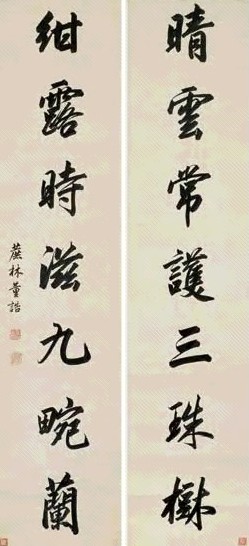 晴雲常護三珠樹
紺露時滋九畹蘭
蔗林董誥